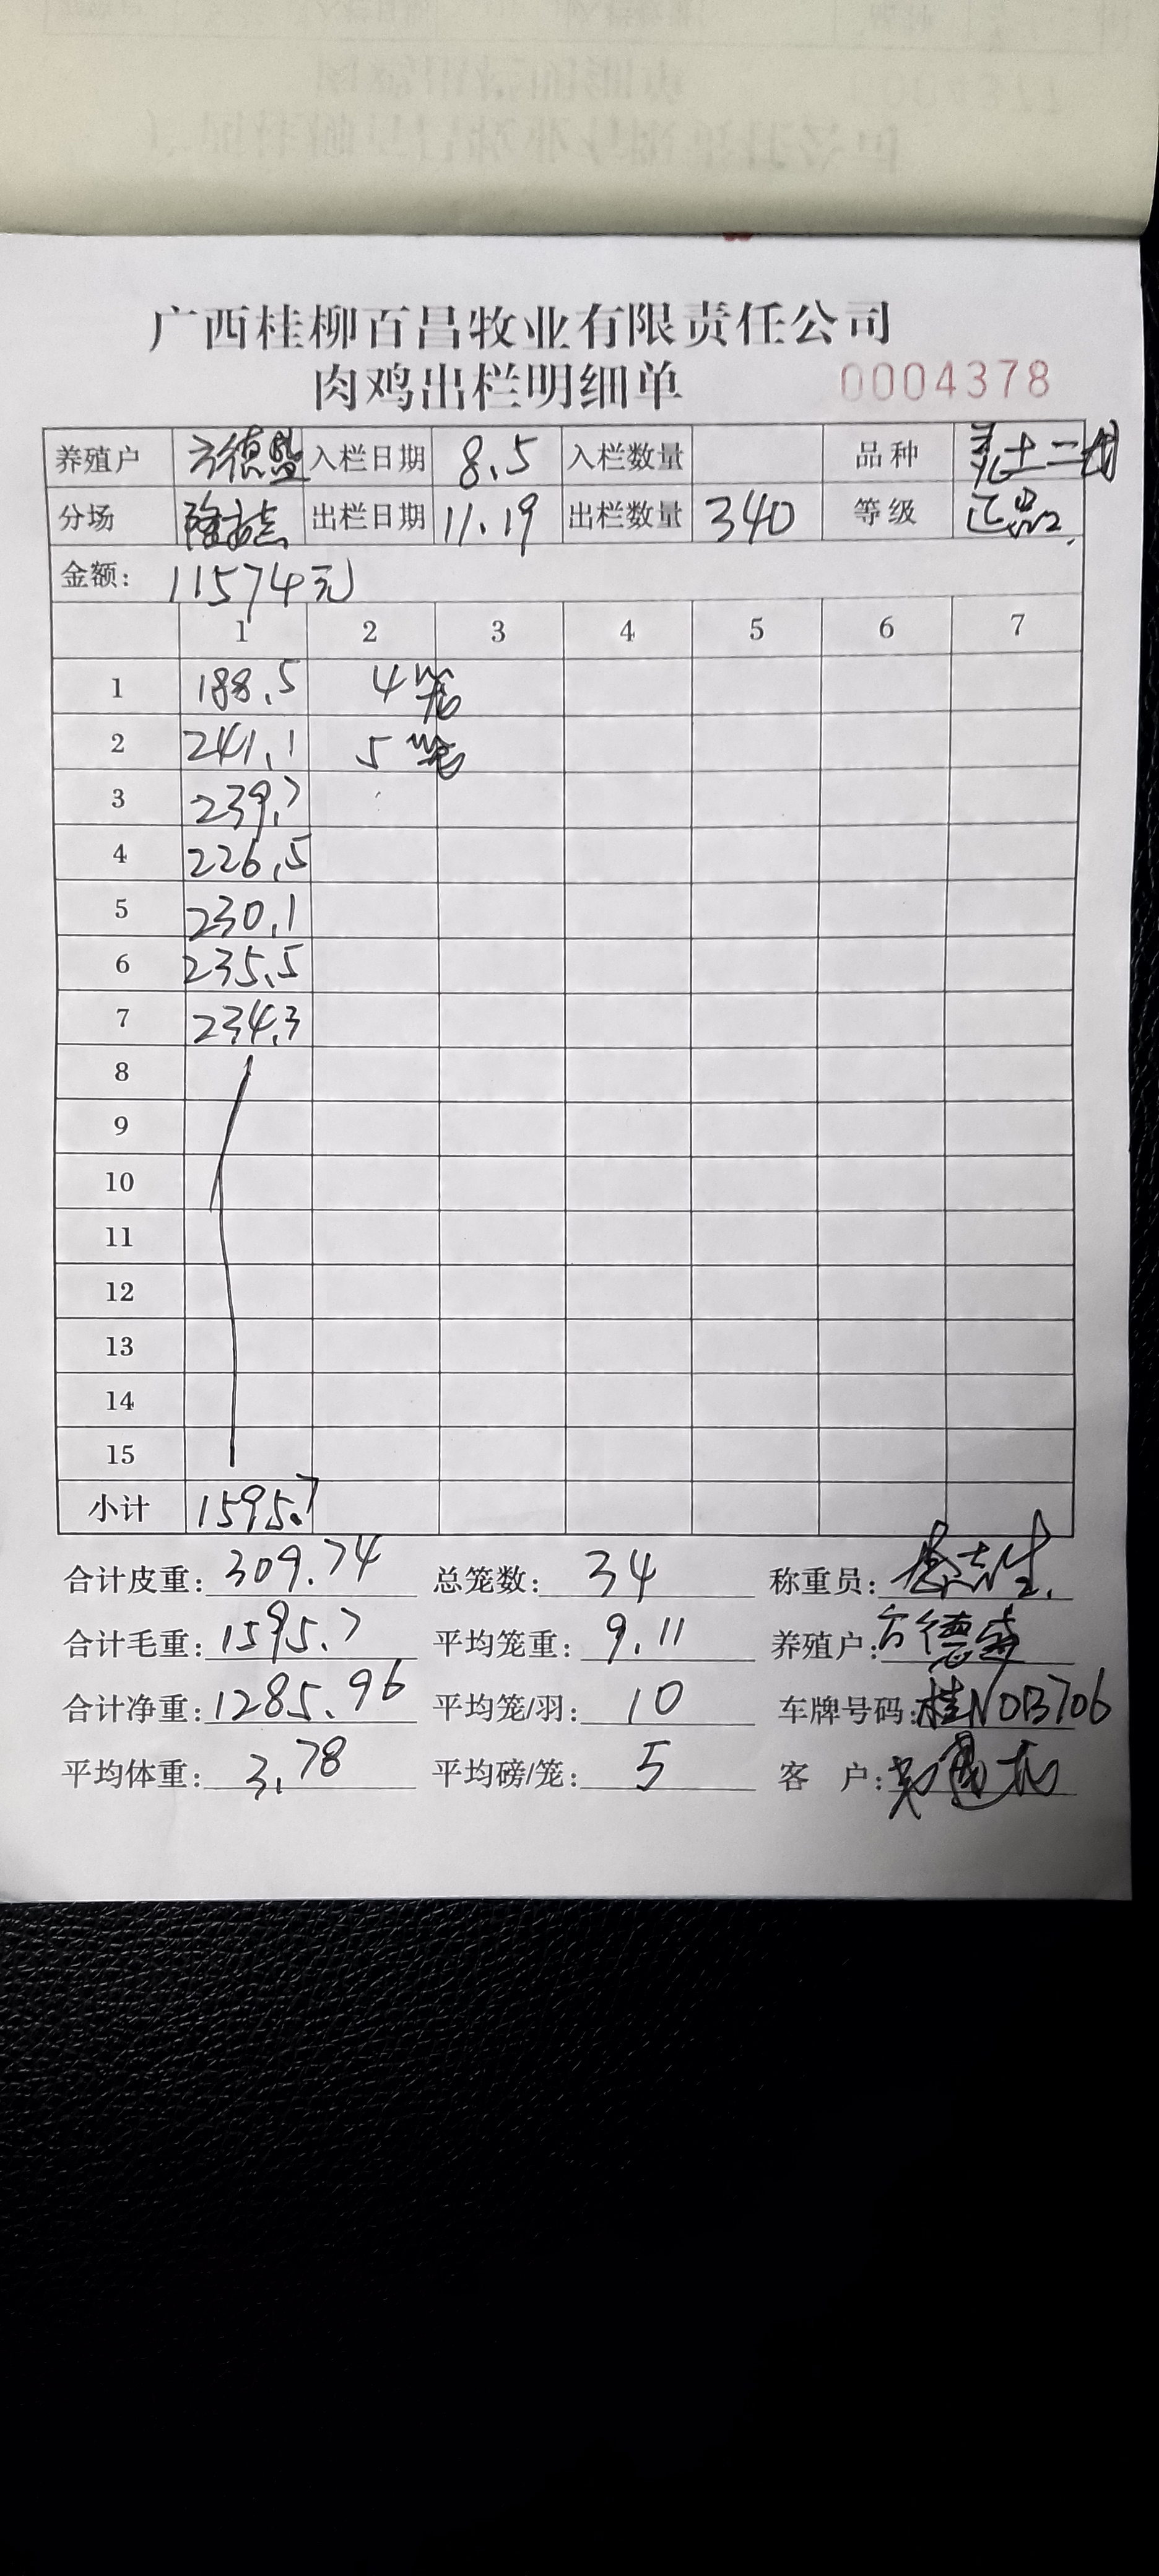 广西桂柳百昌牧业有限责任公司
肉鸡出栏明细单 0004378
养殖户 方德盛 入栏日期 8.5 入栏数量 品种 土二
分场 出栏日期 11.19 出栏数量 340 等级 正品
金额: 11574元
1 2 3 4 5 6 7
1 188.5 4笼
2 241.1 5笼
3 239.7
4 226.5
5 230.1
6 235.5
7 234.3
8
9
10
11
12
13
14
15
小计 1595.7
合计皮重: 309.74 总笼数: 34 称重员:
合计毛重: 1595.7 平均笼重: 9.11 养殖户: 方德盛
合计净重: 1285.96 平均笼/羽: 10 车牌号码: 桂N0B706
平均体重: 3.78 平均磅/笼: 5 客 户: